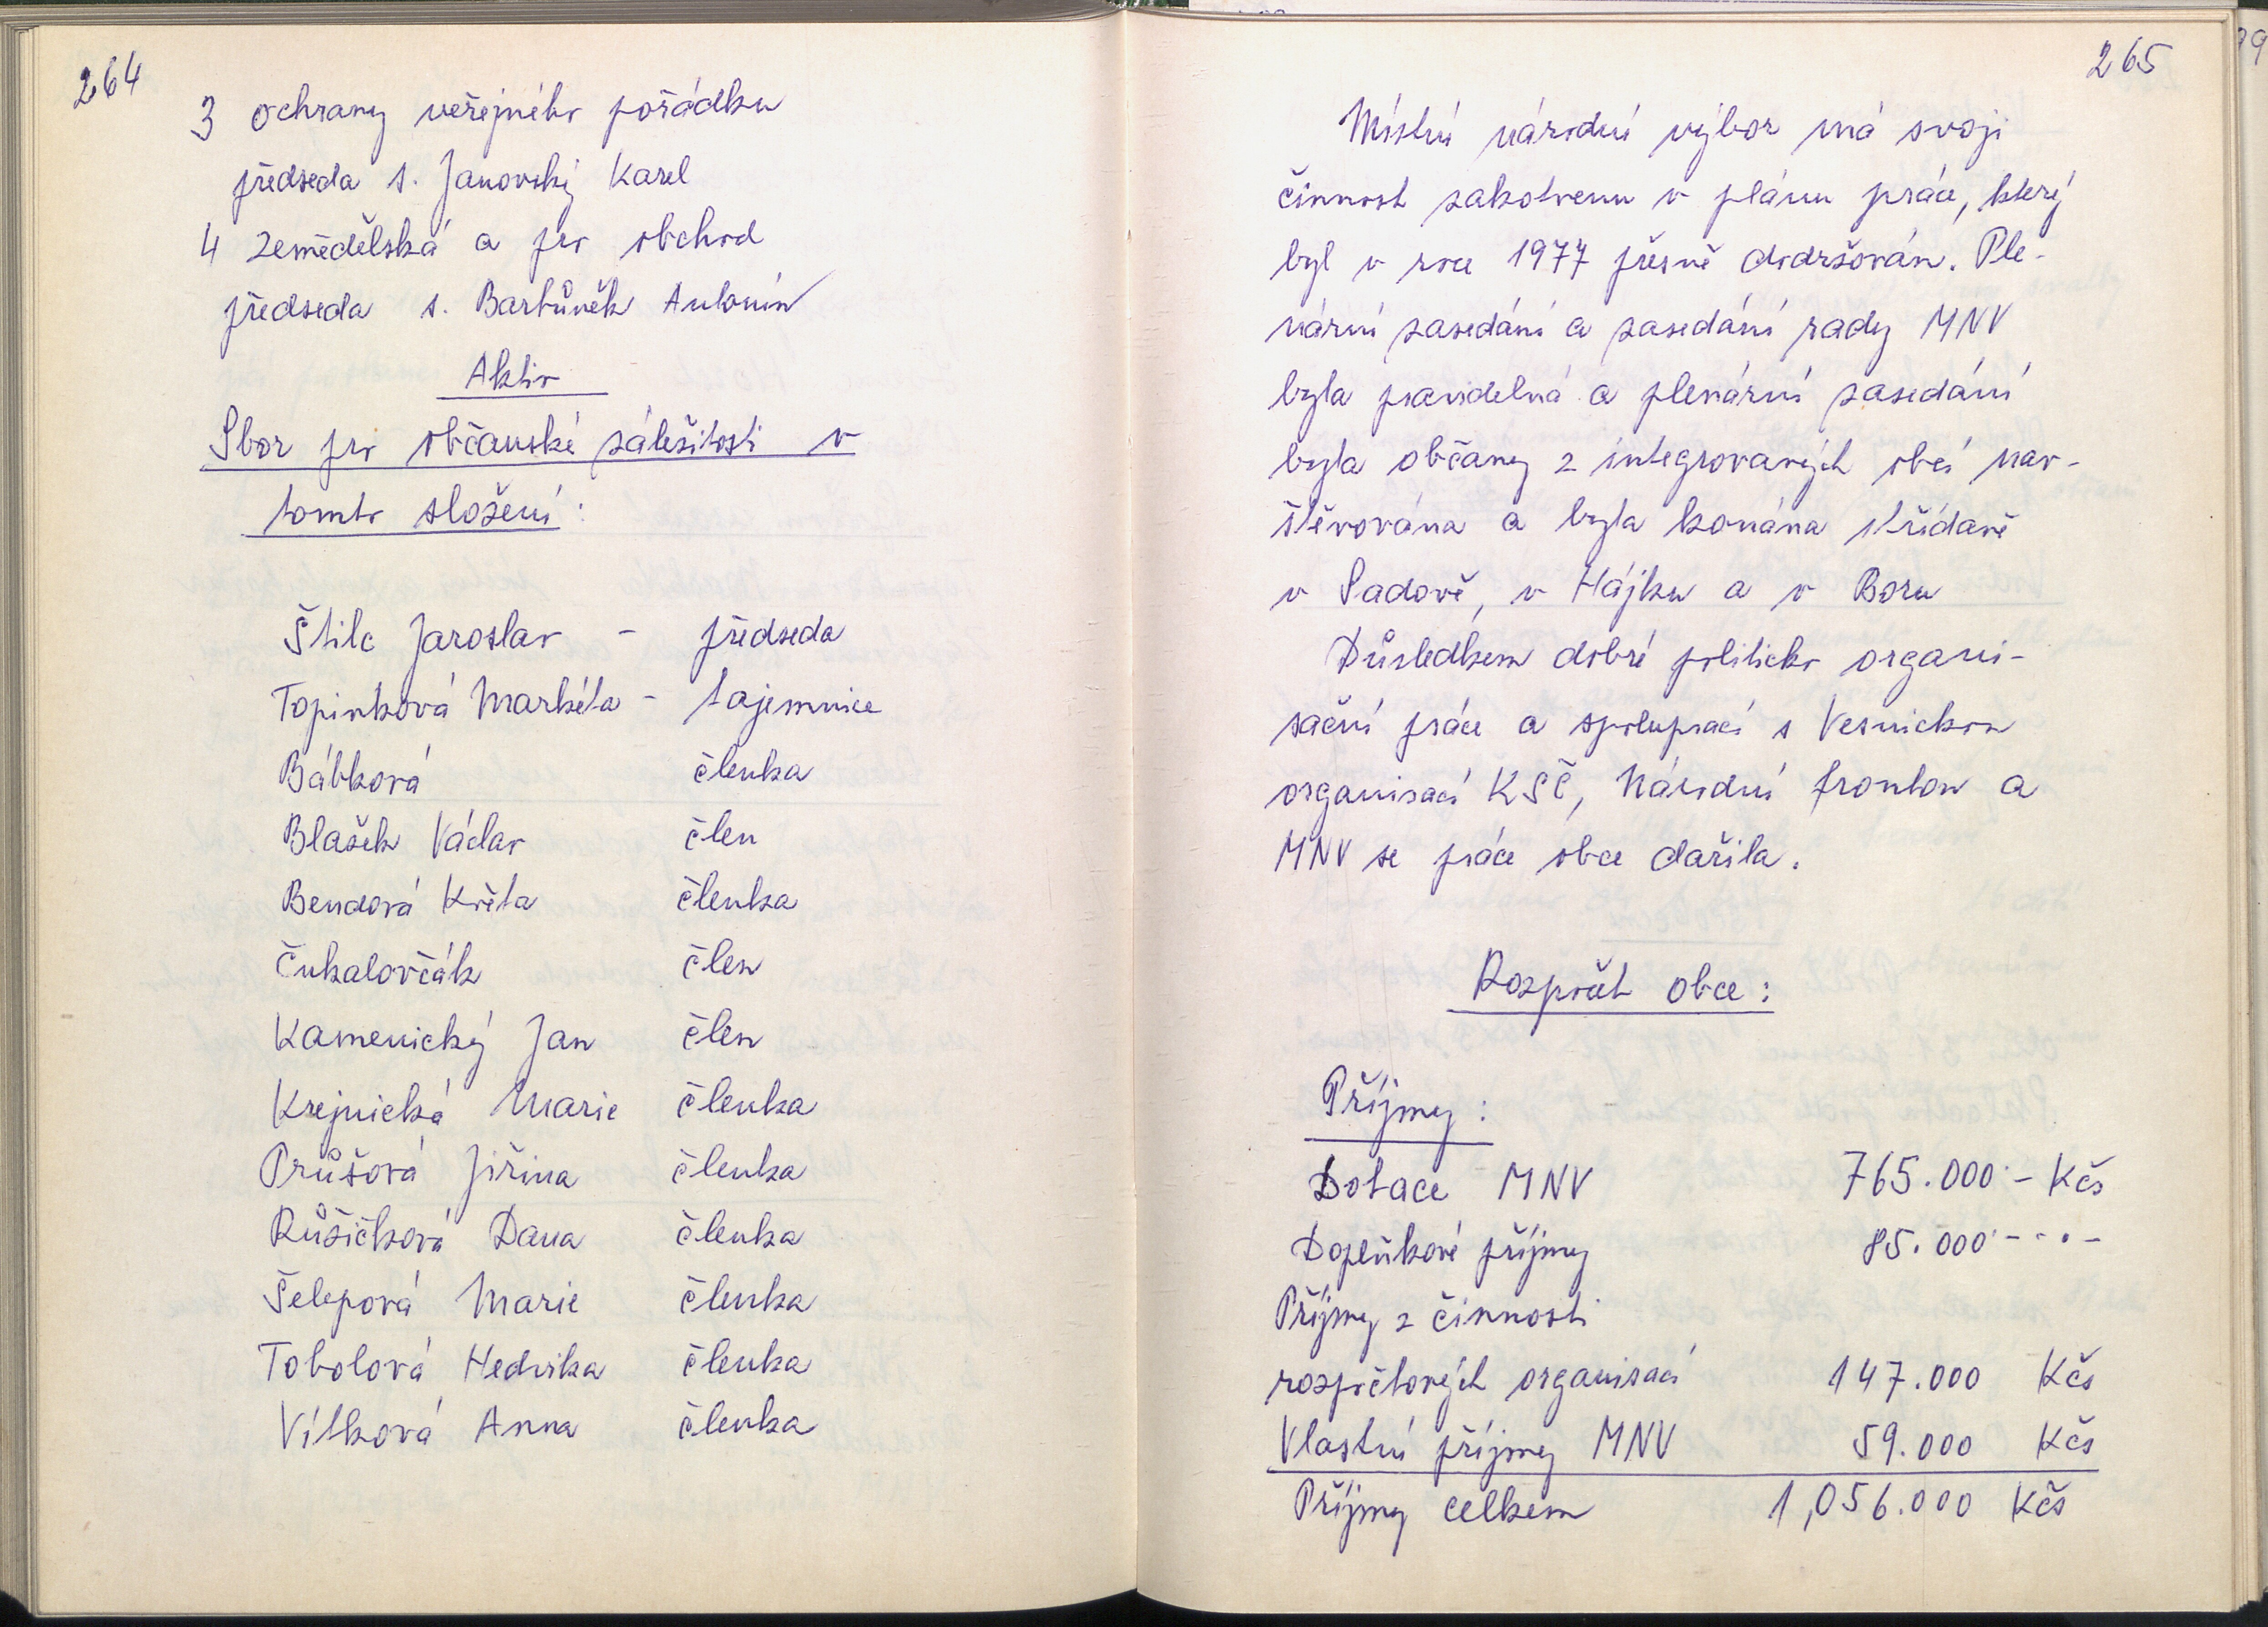 264
3 ochrany veřejného pořádku
předseda s. Janovský Karel
4 zemědělská a pro obchod
předseda s. Bartůněk Antonín
Aktiv
Sbor pro občanské záležitosti v
tomto složení:
Štilc Jaroslav - předseda
Topinková Markéta - tajemnice
Bábková členka
Blažek Václav člen
Bendová Květa členka
Čukalovčák člen
Kamenický Jan člen
Krejnická Marie členka
Průšová Jiřina členka
Růžičková Dana členka
Šelepová Marie členka
Tobolová Hedvika členka
Vítková Anna členka
265
Místní národní výbor má svoji
činnost zakotvenu v plánu práce, který
byl v roce 1977 přesně dodržován. Ple-
nární zasedání a zasedání rady MNV
byla pravidelná a plenární zasedání
byla občany z integrovaných obcí nav-
štěvována a byla konána střídavě
v Sadově, v Hájku a v Boru
Důsledkem dobré politicko organi-
sační práce a spoluprací s Vesnickou
organisací KSČ, Národní frontou a
MNV se práce obce dařila.
Rozpočet obce:
Příjmy:
Dotace MNV 765.000 - Kčs
Doplňkové příjmy 85.000 - " -
Příjmy z činnosti
rozpočtových organisací 147.000 Kčs
Vlastní příjmy MNV 59.000 Kčs
Příjmy celkem 1,056.000 Kčs